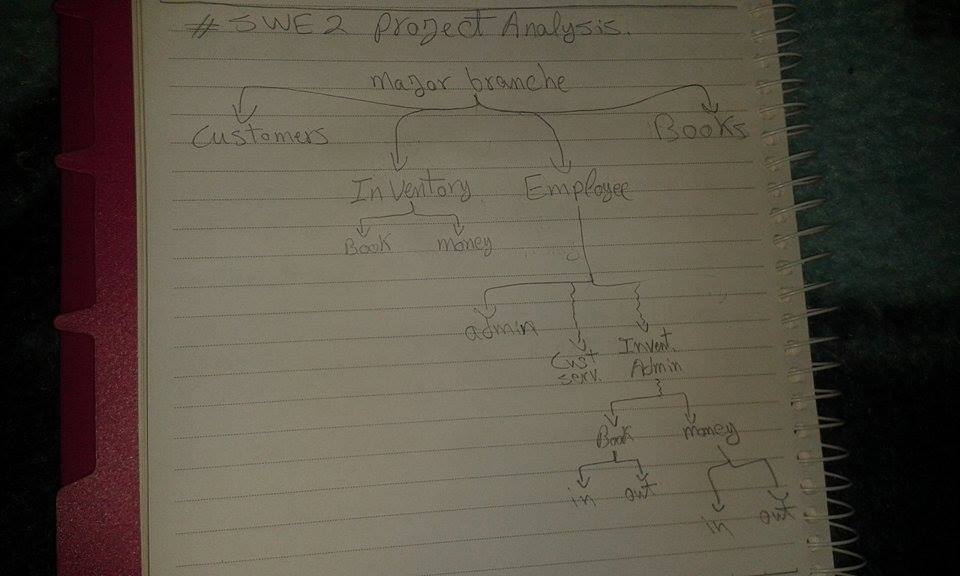 # SWE2 Project Analysis.
Major branche
Customers Books
Inventory Employee
Book money
admin
Cust serv. Invent. Admin
Book money
in out
in out